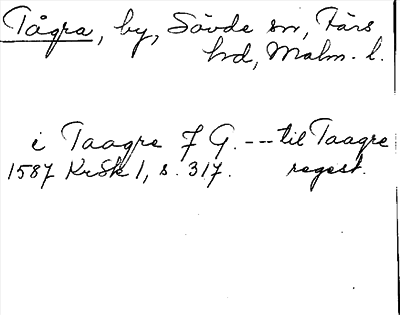 Tågra, by, Sövde sn, Färs
hd, Malm. l.
i Taagre 7 G. --- til Taagre
1587 KrSk 1, s. 317. regest.